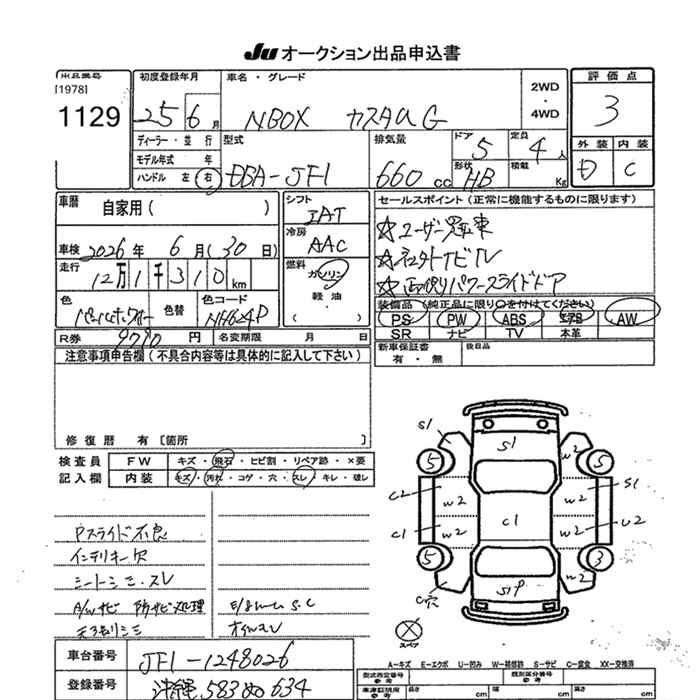 Ju オークション出品申込書
出品番号
[1978]
1129
初度登録年月
25 6 月
車名・グレード
NBOX カスタム G
2WD
・
4WD
評価点
3
外装 内装
D C
ディーラー・並行
モデル年式 年
ハンドル 左 右
型式
DBA-JF1
排気量
660 cc
ドア
5
定員
4 人
形状
HB
積載
Kg
車歴
自家用( )
車検 2026 年 6 月(30 日)
走行
12万1千310 km
色
色替
色コード
NH624P
シフト
IAT
冷房
AAC
燃料
ガソリン
軽油
・
( )
セールスポイント(正常に機能するものに限ります)
☆ユーザー買取車
☆ナビTV
☆両側パワースライドドア
装備品(純正品に限り〇を付けてください)
PS PW ABS エアB AW
SR ナビ TV 本革
R券 9790 円 名変期限 月 日
新車保証書
有・無
後日品
注意事項申告欄(不具合内容等は具体的に記入して下さい)
修復歴 有[箇所 ]
検査員
記入欄
FW キズ・飛石・ヒビ割・リペア跡・×要
内装 キズ・汚れ・コゲ・穴・スレ・キレ・破レ
Pスライド不良
インテリキー欠
シートシミ・スレ
A/Wサビ 防サビ処理
天張りシミ
S1
S1
5
5
C2
W2
W2
S1
C1
W2
C1
W2
U2
5
3
W2
W2
C穴
スペア
A-キズ E-エクボ U-凹み W-補修跡 S-サビ C-腐食 XX-交換済
車台番号 JF1-1248026
登録番号 沖縄 583 ぬ 634
型式指定番号
参考
類別区分番号
参考
車庫証明用
参考
長さ cm 幅 cm 高さ cm